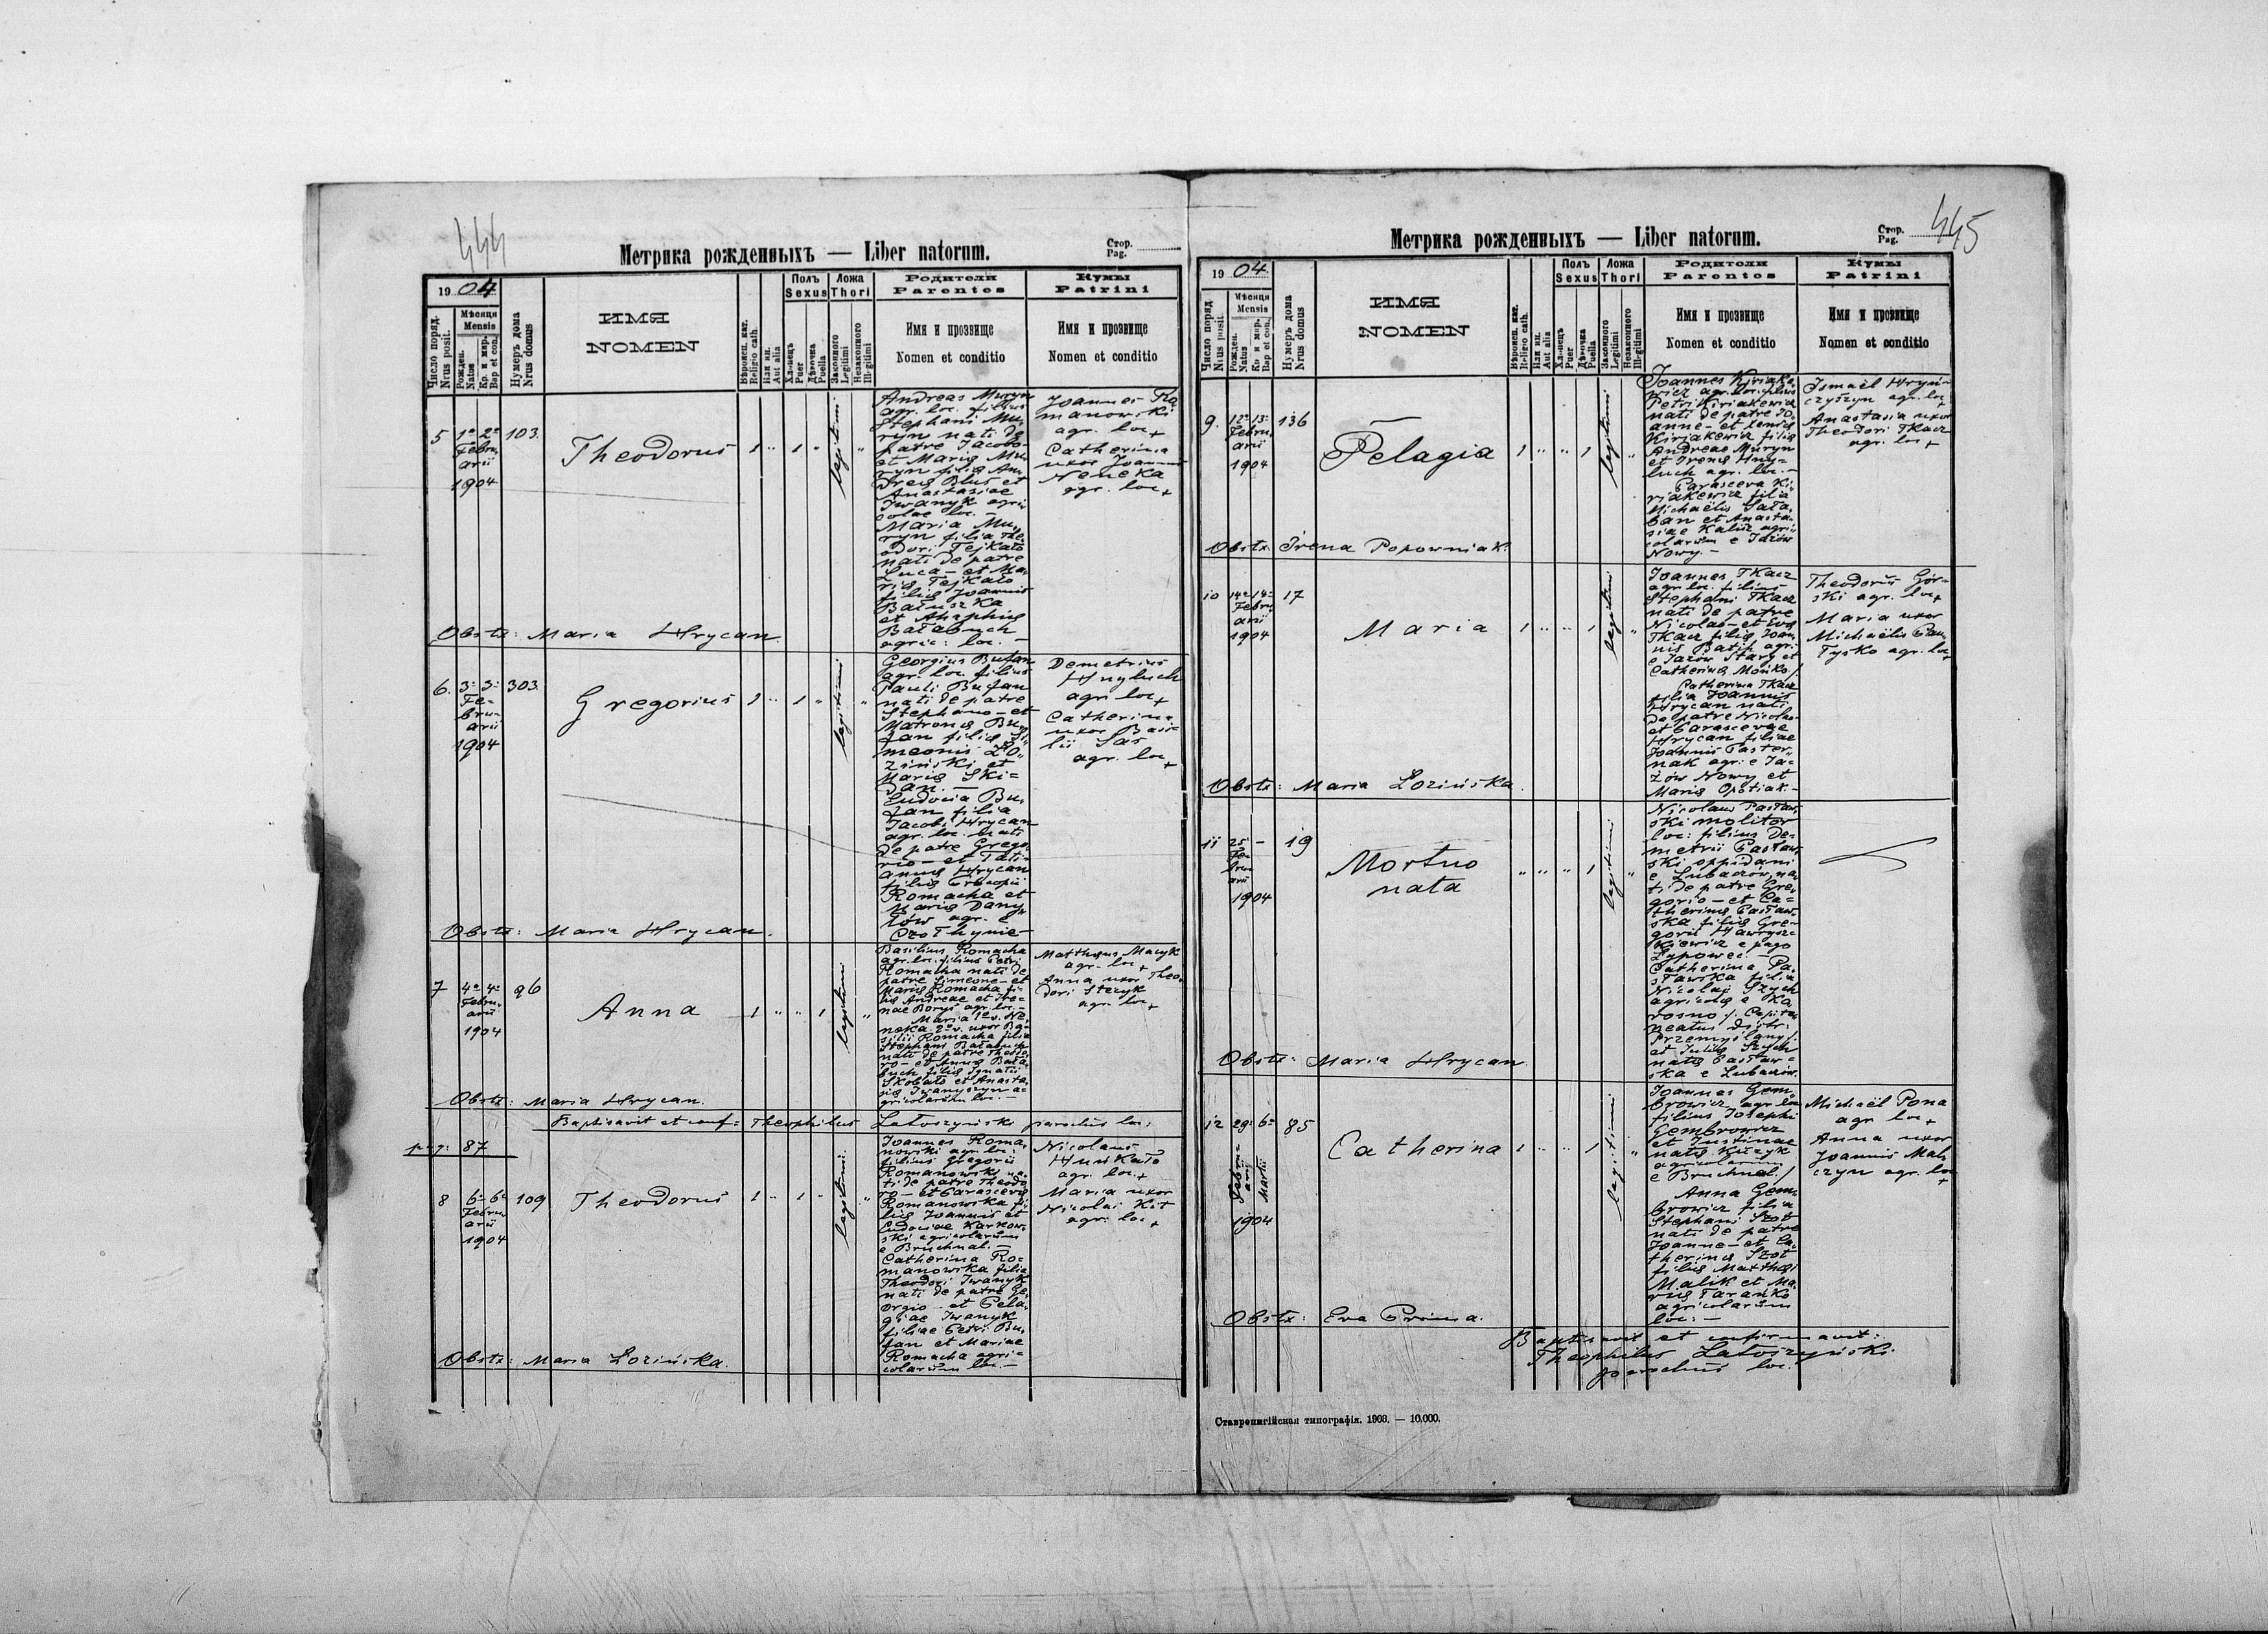 444
Метрика рожденныхъ — Liber natorum.
Стор.
Pag.
19 04
Число поряд.
Nrus posit.
Мѣсяця
Mensis
Рожден.
Natus
Кр. и мир.
Bap et con.
Нумеръ дома
Nrus domus
ИМЯ
NOMEN
Вѣроисп. кат.
Religio cath.
Или ин.
Aut alia
Полъ
Sexus
Хлопецъ
Puer
Дѣвочка
Puella
Ложа
Thori
Законного
Legitimi
Незаконного
Illegitimi
Родители
Parentes
Имя и прозвище
Nomen et conditio
Кумы
Patrini
Имя и прозвище
Nomen et conditio
5 1a 2a 103.
Febru
arii
1904
Theodorus
1 " 1 " legitimi "
Andreas Muryn
agr. loc. filius
Stephani Mu-
ryn nati de
patre Jacobo-
et Mariæ Mu-
ryn filiæ An-
dreæ Blus et
Anastasiae
Iwanyk agri-
colae loc. —
Maria Mu-
ryn filia The-
odori Fejkało
nati de patre
Luca — et Ma-
riæ Fejkało
filiæ Joannis
Bałuszka
et Ahaphiæ
Bałabuch
agric: loc. —
Joannes Ro
manowski
agr. loc +
Catherina
uxor Joannis
Neneka
agr. loc +
Obstx: Maria Hrycan.
6. 3a 3a 303.
Fe-
bru-
arii
1904
Gregorius
1 " 1 " legitimi "
Georgius Bufan
agr. loc. filius
Pauli Bufan
nati de patre
Stephano — et
Matronæ Bu-
fan filiæ Si-
meonis Ło-
ziński et
Mariæ Ski-
dan. —
Eudocia Bu-
fan filia
Jacobi Hrycan
agr. loc. nati
de patre Grego-
rio — et Tati-
annæ Hrycan
filiæ Procopii
Romacha et
Mariæ Dany-
łów agr. e
Czołhynie —
Demetrius
Hnyluch
agr loc +
Catherina
uxor Basi-
lii Sas
agr. loc +
Obstx: Maria Hrycan.
7 4a 4a 96
Febru-
arii
1904
Anna
1 " " 1 legitimi "
Basilius Romacha
agr. loc. filius Petri
Romacha nati de
patre Simeone — et
Mariæ Romacha fi-
liæ Andreae et Ire-
nae Borys agr. loc. —
Maria 1o v. Ne-
neka 2o v. uxor Ba-
silii Romacha filia
Stephani Bałabuch
nati de patre Theodo-
ro — et Annæ Bała-
buch filiæ Ignatii
Skobało et Anasta-
siæ Iwanyszyn a-
gricolarum loc. —
Matthæus Macyk
agr. loc +
Anna uxor Theo-
dori Steryk
agr. loc +
Obstx: Maria Hrycan.
Baptisavit et conf: Theophilus Łatoszyński parochus loc:
pag: 87
8 6a 6a 109
Febru-
arii
1904
Theodorus
1 " 1 " legitimi "
Joannes Roma-
nowski agr. loc:
filius Gregorii
Romanowski na-
ti de patre Theodo-
ro — et Parascevæ
Romanowska fi-
liæ Joannis et
Eudociae Karkow-
ski agricolarum
e Bruchnal. —
Catherina Ro-
manowska filia
Theodori Iwanyk
nati de patre Ge-
orgio — et Pela-
giae Iwanyk
filiae Petri Bu-
fan et Mariae
Romacha agri-
colarum loc. —
Nicolaus
Huńkało
agr. loc. +
Maria uxor
Nicolai Kit
agr. loc +
Obstx: Maria Łozińska.
445
Метрика рожденныхъ — Liber natorum.
Стор.
Pag.
19 04.
Число поряд
Nrus posit.
Мѣсяця
Mensis
Рожден.
Natus
Кр. и мир.
Bap et con.
Нумеръ дома
Nrus domus
ИМЯ
NOMEN
Вѣроисп. кат.
Religio cath.
Или ин.
Aut alia
Полъ
Sexus
Хлопецъ
Puer
Дѣвочка
Puella
Ложа
Thori
Законного
Legitimi
Незаконного
Illegitimi
Родители
Parentes
Имя и прозвище
Nomen et conditio
Кумы
Patrini
Имя и прозвище
Nomen et conditio
9. 12a 13a 136
Febru
arii
1904
Pelagia
1 " " 1 legitimi "
Joannes Kiriake-
wicz agr. loc. filius
Petri Kiriakewicz
nati de patre Jo-
anne — et Xeniæ
Kiriakewicz filiæ
Andreae Muryn
et Irenæ Hny-
luch agr. loc. —
Parasceva Ki-
riakewicz filia
Michaëlis Sała-
ban et Anasta-
siae Kalisz agri-
colarum e Jażów
Nowy. —
Ismaël Hryń-
czyszyn agr. loc +
Anastasia uxor
Theodori Tkacz
agr. loc +
Obstx. Irena Popowniak.
10 14a 14a 17
Febru
arii
1904
Maria
1 " " 1 legitimi "
Joannes Tkacz
agr. loc. filius
Stephani Tkacz
nati de patre
Nicolao — et Evæ
Tkacz filiæ Joan-
nis Batih agr.
e Jażów Stary et
Catherinæ Mońko /
Catherina Tkacz
filia Joannis
Hrycan nati
de patre Nicolao
et Parascevae
Hrycan filiae
Joannis Paster-
nak agr: e Ja-
żów Nowy et
Mariæ Opotiak. —
Theodorus Gór-
ski agr. loc +
Maria uxor
Michaëlis Pau-
tyśko agr. loc +
Obstx: Maria Łozińska.
11 25 — 19
Fe-
bru
arii
1904
Mortuo
nata
" " " 1 legitimi "
Nicolaus Pasław-
ski molitor
loc: filius De-
metrii Pasław-
ski oppidani
e Lubaczów na-
ti de patre Gre-
gorio — et Ca-
therinæ Pasław-
ska filiæ Gre-
gorii Hawrysz-
kiewicz e pago
Łypowec. —
Catherina Pa-
sławska filia
Nicolai Szych
agricolæ e Ka-
rosno /. Capita-
neatus distr:
Przemyślany /.
et Juliæ Szych
natæ Pasław-
ska e Lubaczów.
Obstx: Maria Hrycan.
12 29a 6a 85
Febru-
arii
Martii
1904
Catherina
1 " " 1 legitimi "
Joannes Gem-
browicz agr. loc
filius Josephi
Gembrowicz
et Justinae
natæ Kiczyk
agricolarum
e Bruchnal. /
Anna Gem-
browicz filia
Stephani Szot
nati de patre
Joanne — et Ca-
therinæ Szot
filiæ Matthæi
Malik et Ma-
riæ Tarańko
agricolarum
loc: —
Michaël Pona
agr loc +
Anna uxor
Joannis Mal-
czyn agr. loc +
Obstx: Eva Proima.
Baptisavit et confirmavit:
Theophilus Łatoszyński
parochus loc.
Ставропигійская типографія. 1903. — 10.000.